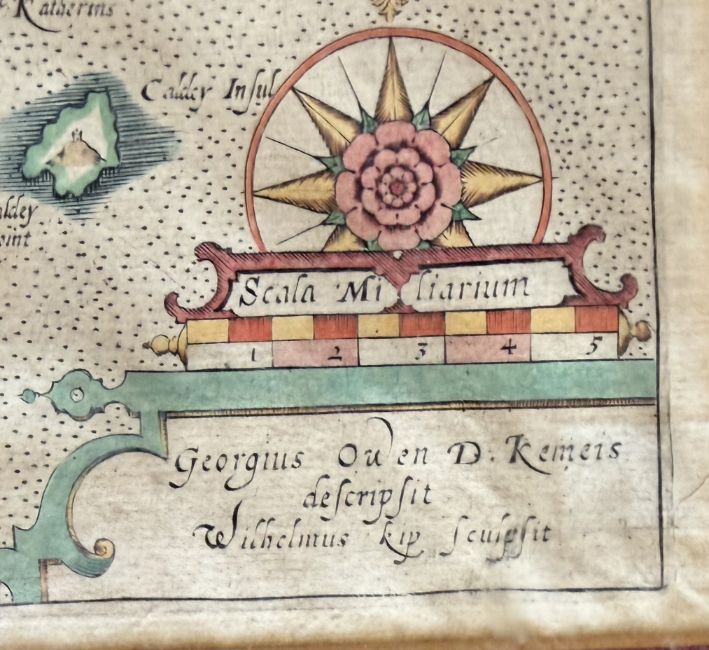 Katherins
Caldey Insul
oint
Scala Miliarium
1 2 3 4 5
Georgius Owen D. Kemeis
descripsit
Wilhelmus kip sculpsit